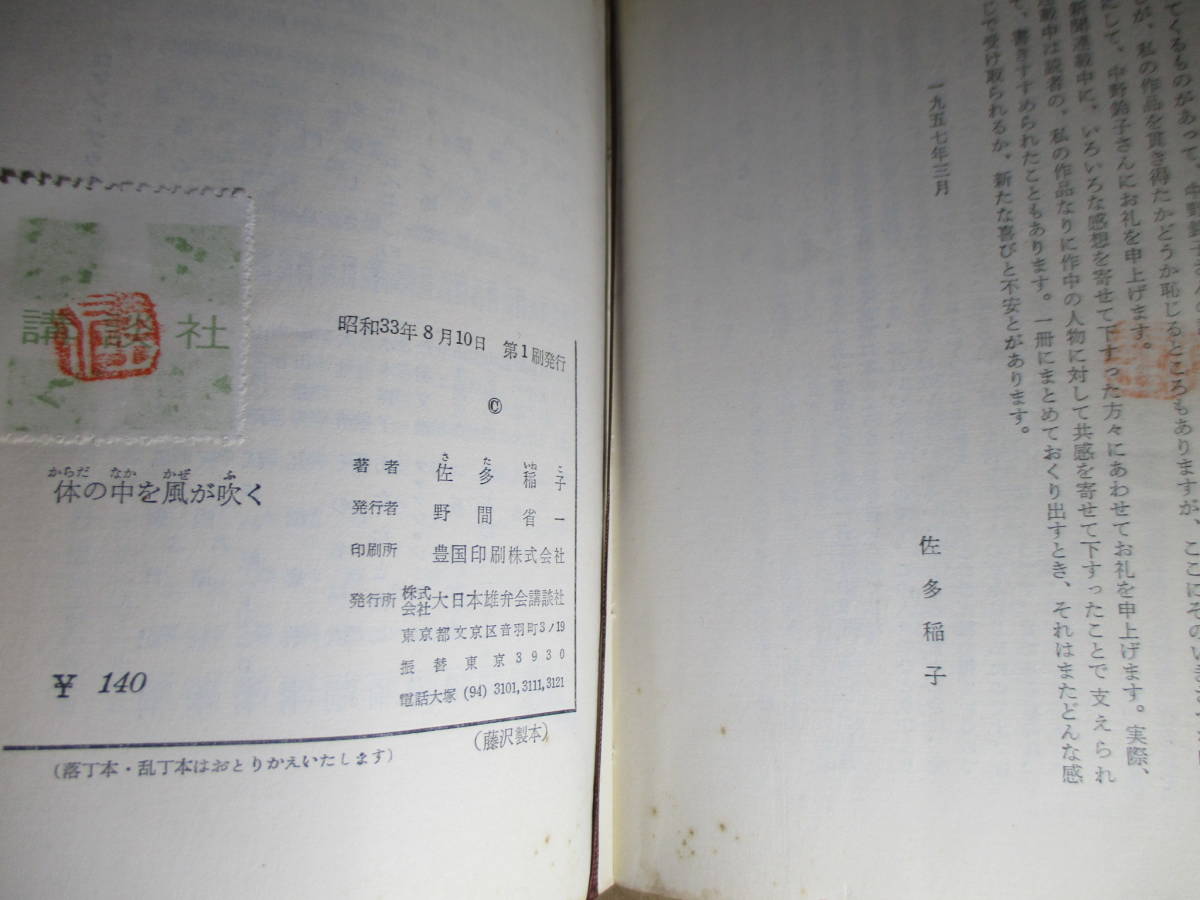 てくるものがあって、中野鈴子
ここにそのい
が、私の作品を貫き得たかどうか恥じるところもありますが、
にして、中野鈴子さんにお礼を申上げます。
新聞連載中に、いろいろな感想を寄せて下すった方々にあわせてお礼を申上げます。実際、
載中は読者の、私の作品なりに作中の人物に対して共感を寄せて下すったことで支えられ
て、書きすすめられたこともあります。一冊にまとめておくり出すとき、それはまたどんな感
じで受け取られるか、新たな喜びと不安とがあります。
一九五七年三月
佐多稲子
講談社
昭和33年8月10日 第1刷発行
©
体の中を風が吹く
からだ なか かぜ ふ
著者 佐多稲子
さ た いね こ
発行者 野間省一
印刷所 豊国印刷株式会社
発行所 株式会社大日本雄弁会講談社
東京都文京区音羽町3ノ19
振替東京3930
電話大塚 (94) 3101,3111,3121
¥ 140
(藤沢製本)
(落丁本・乱丁本はおとりかえいたします)